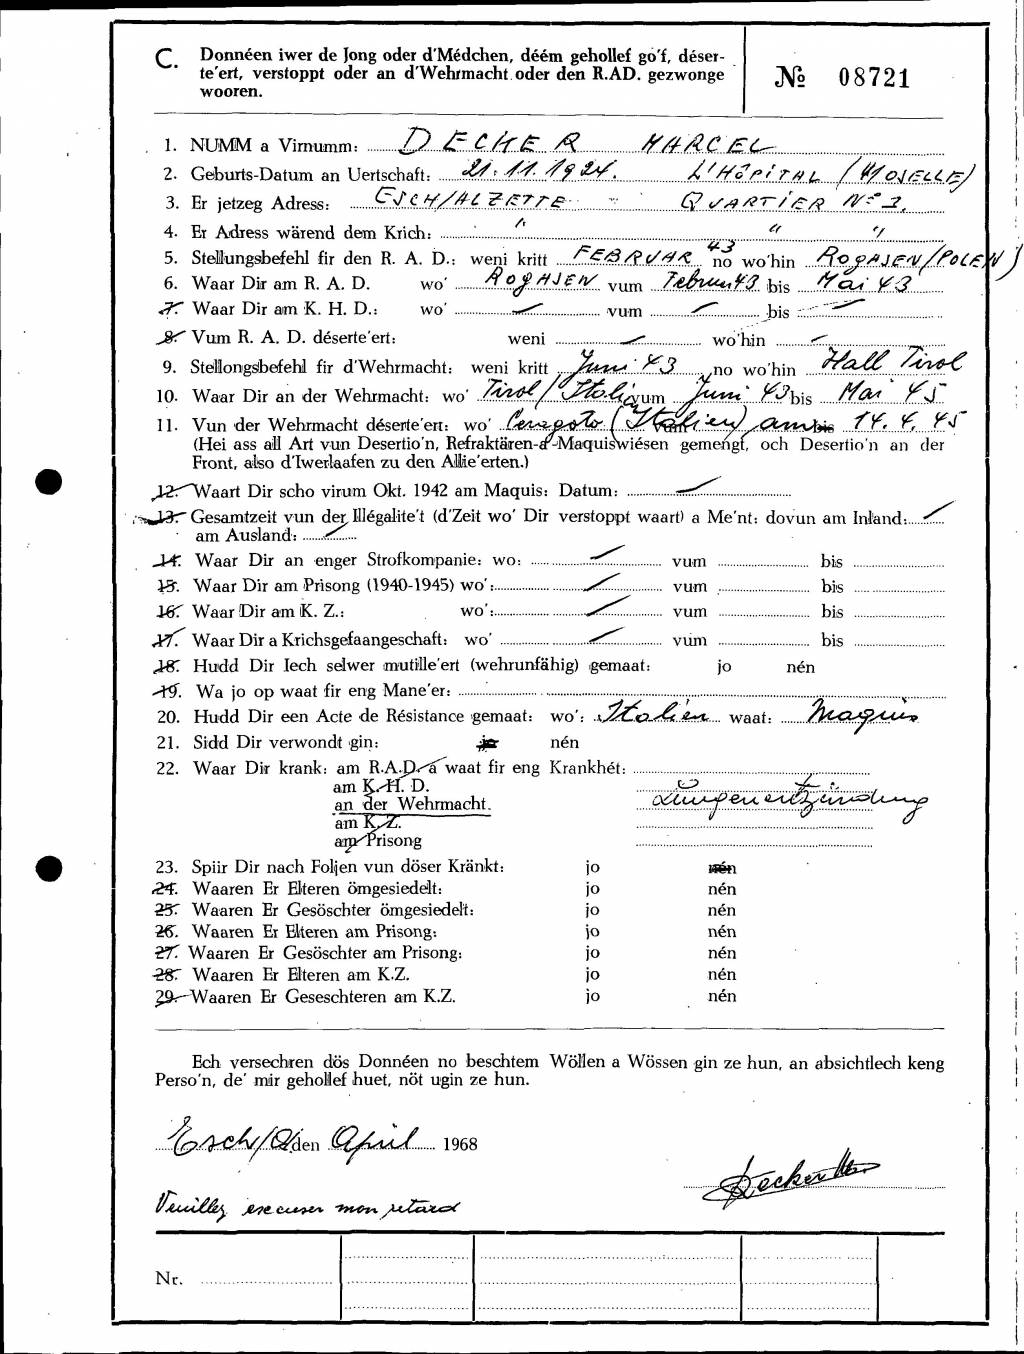 C. Donnéen iwer de Jong oder d'Médchen, déém gehollef go'f, déser-
te'ert, verstoppt oder an d'Wehrmacht oder den R.AD. gezwonge
wooren.
№ 08721
1. NUMM a Virnumm: DECKER MARCEL
2. Geburts-Datum an Uertschaft: 21.11.1924. L'HôPITAL (MOSELLE)
3. Er jetzeg Adress: ESCH/ALZETTE QUARTIER N° 3.
4. Er Adress wärend dem Krich: " " "
5. Stellungsbefehl fir den R. A. D.: weni kritt FEBRUAR 43 no wo'hin ROGASEN/POLEN)
6. Waar Dir am R. A. D. wo' ROGASEN vum Februar 43 bis Mai 43
7. Waar Dir am K. H. D.: wo' vum bis
8. Vum R. A. D. déserte'ert: weni wo'hin
9. Stellongsbefehl fir d'Wehrmacht: weni kritt Juni 43 no wo'hin Hall Tirol
10. Waar Dir an der Wehrmacht: wo' Tirol/Italien vum Juni 43 bis Mai 45
11. Vun der Wehrmacht déserte'ert: wo' (Italien) am bis 14. 4. 45
(Hei ass all Art vun Desertio'n, Refraktären-a-Maquiswiésen gemengt, och Desertio'n an der
Front, also d'Iwerlaafen zu den Allie'erten.)
12. Waart Dir scho virum Okt. 1942 am Maquis: Datum:
13. Gesamtzeit vun der Illégalite't (d'Zeit wo' Dir verstoppt waart) a Me'nt: dovun am Inland:
am Ausland:
14. Waar Dir an enger Strofkompanie: wo: vum bis
15. Waar Dir am Prisong (1940-1945) wo': vum bis
16. Waar Dir am K. Z.: wo': vum bis
17. Waar Dir a Krichsgefaangeschaft: wo' vum bis
18. Hudd Dir Iech selwer mutille'ert (wehrunfähig) gemaat: jo nén
19. Wa jo op waat fir eng Mane'er:
20. Hudd Dir een Acte de Résistance gemaat: wo': Italien waat: Maquis
21. Sidd Dir verwondt gin: jo nén
22. Waar Dir krank: am R.A.D. a waat fir eng Krankhét:
am K. H. D.
an der Wehrmacht. Lungenentzündung
am K. Z.
am Prisong
23. Spiir Dir nach Foljen vun döser Kränkt: jo nén
24. Waaren Er Elteren ömgesiedelt: jo nén
25. Waaren Er Gesöschter ömgesiedelt: jo nén
26. Waaren Er Elteren am Prisong: jo nén
27. Waaren Er Gesöschter am Prisong: jo nén
28. Waaren Er Elteren am K.Z. jo nén
29. Waaren Er Geseschteren am K.Z. jo nén
Ech versechren dös Donnéen no beschtem Wöllen a Wössen gin ze hun, an absichtlech keng
Perso'n, de' mir gehollef huet, nöt ugin ze hun.
Esch/A den April 1968
Decker
Veuillez excuser mon retard
Nr.